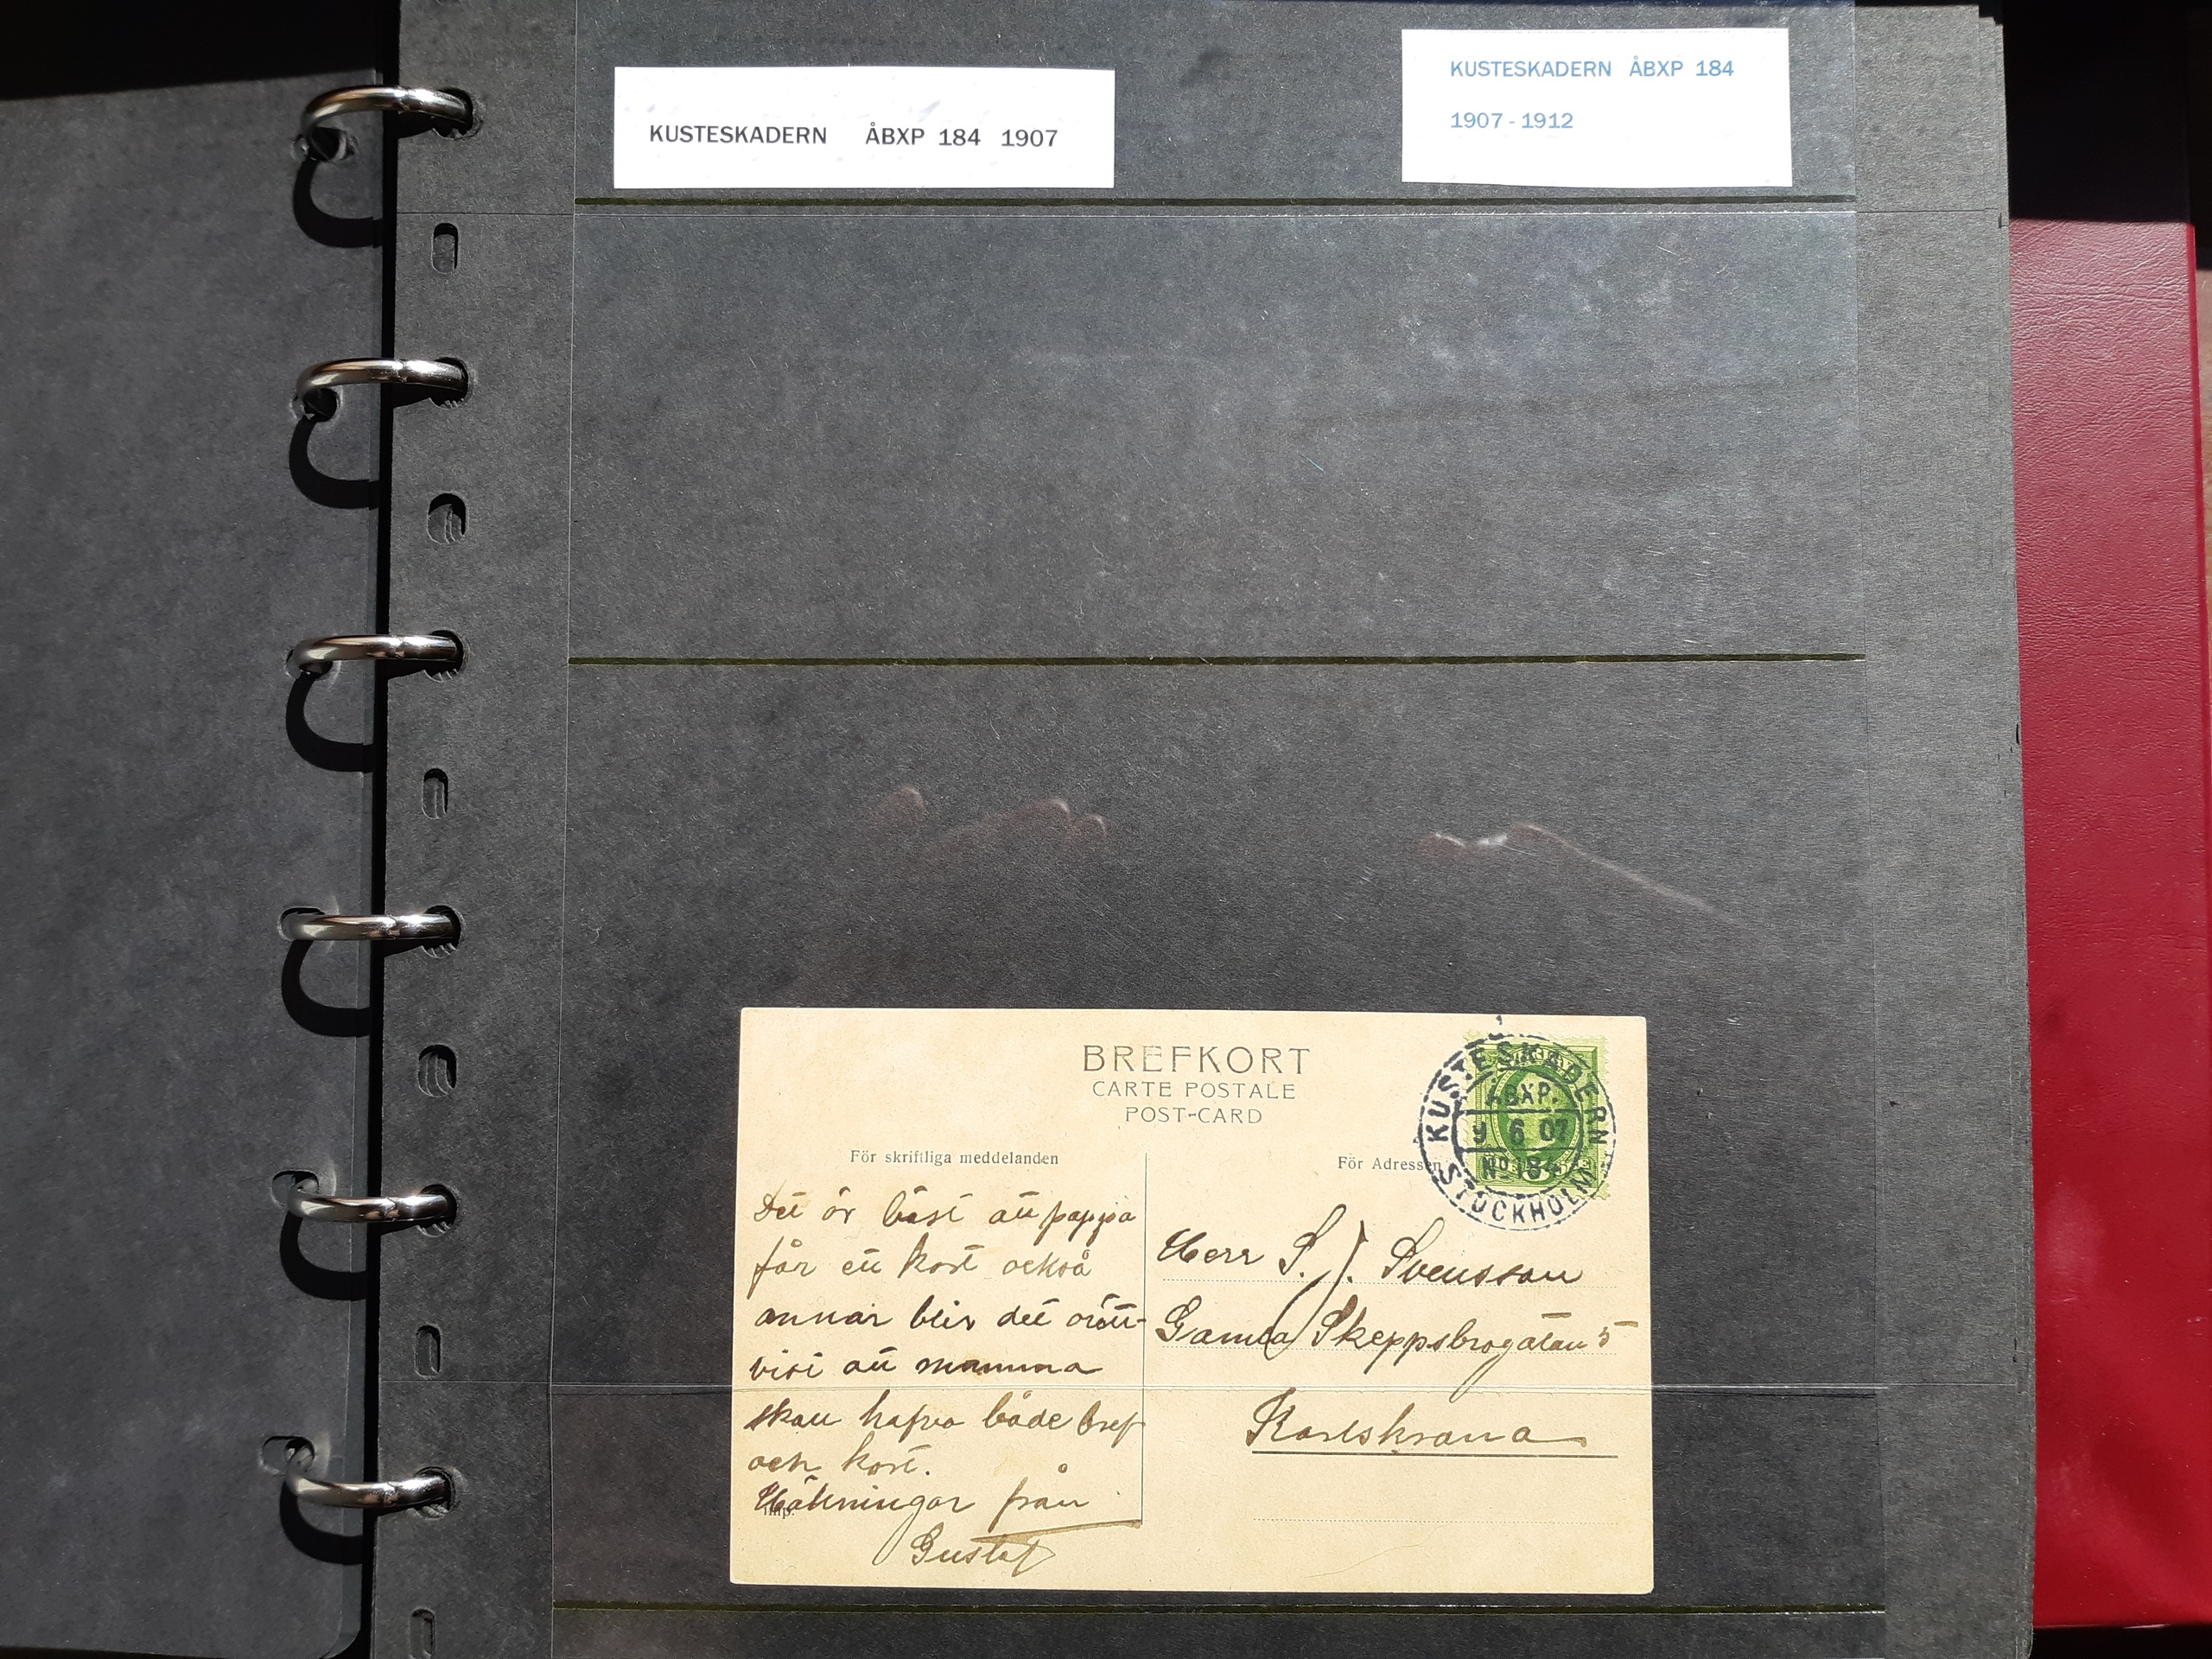 KUSTESKADERN ÅBXP 184 1907
KUSTESKADERN ÅBXP 184
1907 - 1912
BREFKORT
CARTE POSTALE
POST-CARD
För skriftliga meddelanden
För Adressen
KUSTESKADERN
ÅBXP.
9 6 07
No 184
STOCKHOLM
Det är bäst att pappa
får ett kort också
annar blir det orätt-
vist att mamma
skall hafva både bref
och kort.
Hälsningar från
Gustaf
Herr S. J. Svensson
Gamla Skeppsbrogatan 5
Karlskrona
Imp.